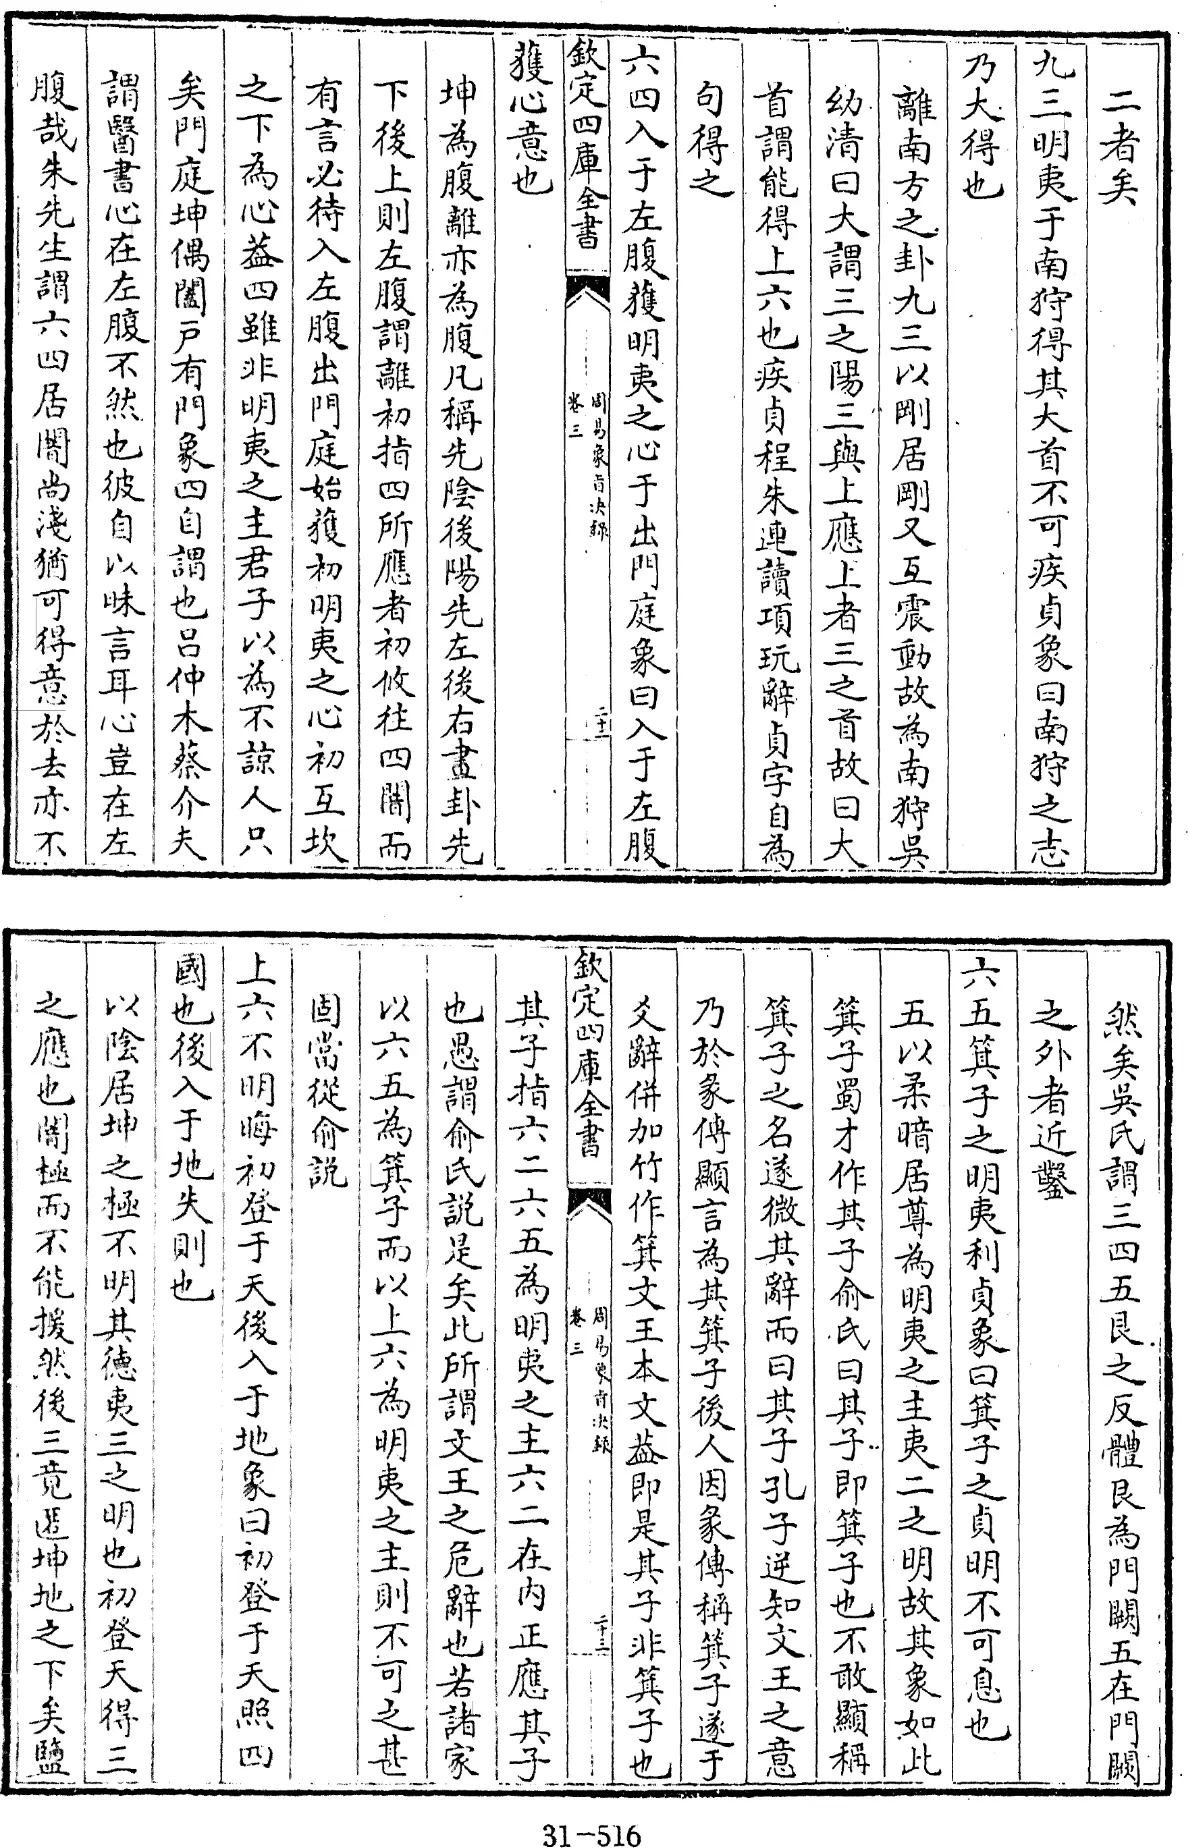 二者矣
九三明夷于南狩得其大首不可疾貞象曰南狩之志
乃大得也
離南方之卦九三以剛居剛又互震動故為南狩吳
幼清曰大謂三之陽三與上應上者三之首故曰大
首謂能得上六也疾貞程朱連讀項玩辭貞字自為
句得之
六四入于左腹獲明夷之心于出門庭象曰入于左腹
欽定四庫全書
周易象旨決錄
卷三
二十二
獲心意也
坤為腹離亦為腹凡稱先陰後陽先左後右畫卦先
下後上則左腹謂離初指四所應者初攸往四闇而
有言必待入左腹出門庭始獲初明夷之心初互坎
之下為心葢四雖非明夷之主君子以為不諒人只
矣門庭坤偶闔戸有門象四自謂也呂仲木蔡介夫
謂醫書心在左腹不然也彼自以昧言耳心豈在左
腹哉朱先生謂六四居闇尚淺猶可得意於去亦不
然矣吳氏謂三四五艮之反體艮為門闕五在門闕
之外者近鑿
六五箕子之明夷利貞象曰箕子之貞明不可息也
五以柔暗居尊為明夷之主夷二之明故其象如此
箕子蜀才作其子俞氏曰其子即箕子也不敢顯稱
箕子之名遂微其辭而曰其子孔子逆知文王之意
乃於彖傳顯言為其箕子後人因彖傳稱箕子遂于
爻辭併加竹作箕文王本文葢即是其子非箕子也
欽定四庫全書
周易象旨決錄
卷三
二十三
其子指六二六五為明夷之主六二在内正應其子
也愚謂俞氏說是矣此所謂文王之危辭也若諸家
以六五為箕子而以上六為明夷之主則不可之甚
固當從俞說
上六不明晦初登于天後入于地象曰初登于天照四
國也後入于地失則也
以陰居坤之極不明其德夷三之明也初登天得三
之應也闇極而不能援然後三竟退坤地之下矣鹽
31-516